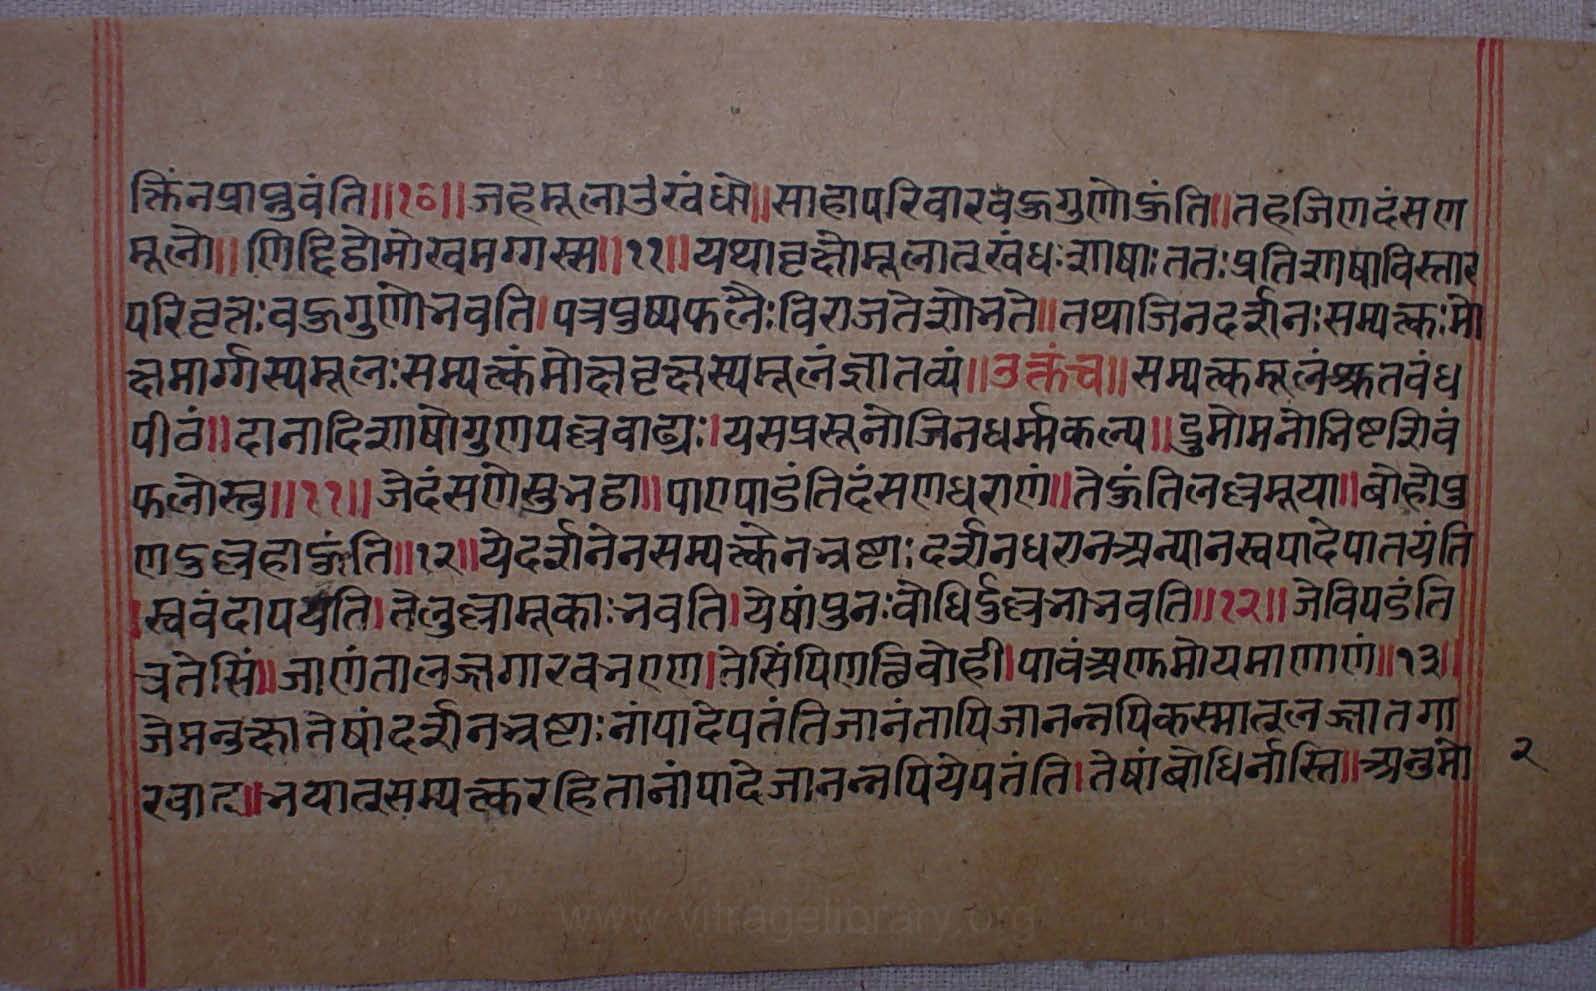 क्तिंनप्राप्नुवंति॥१०॥जहमूलाउखंधो॥साहापरिवारवहुगुणोहुंति॥तहजिणदंसण
मूलो॥णिद्दिठोमोखमग्गस्स॥११॥यथावृक्षोमूलात्खंधःशाषाःततःप्रतिशाषाविस्तार
परिवृतःवहुगुणोभवति।पत्रपुष्पफलैःविराजतेशोभते॥तथाजिनदर्शनःसम्यत्कःमो
क्षमार्ग्गस्यमूलःसम्यत्कंमोक्षवृक्षस्यमूलंज्ञातव्यं॥उक्तंच॥सम्यत्कमूलंश्रुतवंध
पीठं॥दानादिशाषोगुणपल्लवाढ्यः।यसप्रसूनोजिनधर्म्मकल्प॥द्रुमोमनोभिष्टशिवं
फलोस्तु॥११॥जेदंसणेसुभठा॥पाएपाडंतिदंसणधराणं॥तेहुंतिलल्लमूया॥बोहोपु
णदुल्लहाहुंति॥१२॥येदर्शनेनसम्यत्केनभ्रष्टाःदर्शनधरानअन्यानस्वपादेपातयंति
।स्ववंदापयंति।तेलुल्लामूकाःभवति।येषांपुनःवोधिर्दुल्लभाभवति॥१२॥जेविपडंति
चतेसिं॥जाणंतालज्जगारवभएण।तेसिंपिणत्थिवोही।पावंअणुमोयमाणाणं॥१३॥
जेमनुक्षातेषांदर्शनभ्रष्टाःनांपादेपतंतिजानंतापिजानन्नपिकस्मात्लज्जातगा
रवात्॥भयात्सम्यत्करहितानांपादेजानन्नपियेपतंति।तेषांबोधिर्नास्ति॥अनुमो
२
www.vitragelibrary.org